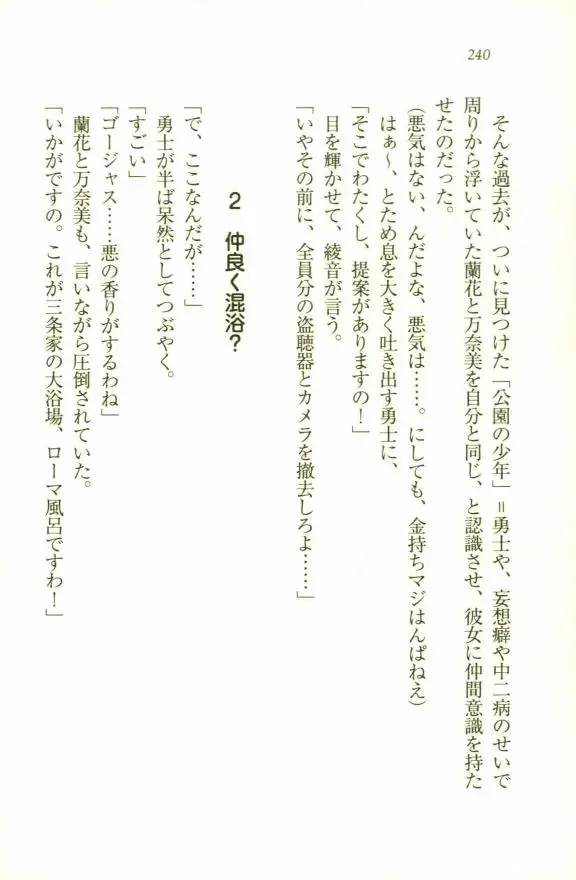 240
そんな過去が、ついに見つけた「公園の少年」＝勇士や、妄想癖や中二病のせいで
周りから浮いていた蘭花と万奈美を自分と同じ、と認識させ、彼女に仲間意識を持た
せたのだった。
(悪気はない、んだよな、悪気は……。にしても、金持ちマジはんぱねえ)
はぁ〜、とため息を大きく吐き出す勇士に、
「そこでわたくし、提案がありますの！」
目を輝かせて、綾音が言う。
「いやその前に、全員分の盗聴器とカメラを撤去しろよ……」
2 仲良く混浴？
「で、ここなんだが……」
勇士が半ば呆然としてつぶやく。
「すごい」
「ゴージャス……悪の香りがするわね」
蘭花と万奈美も、言いながら圧倒されていた。
「いかがですの。これが三条家の大浴場、ローマ風呂ですわ！」